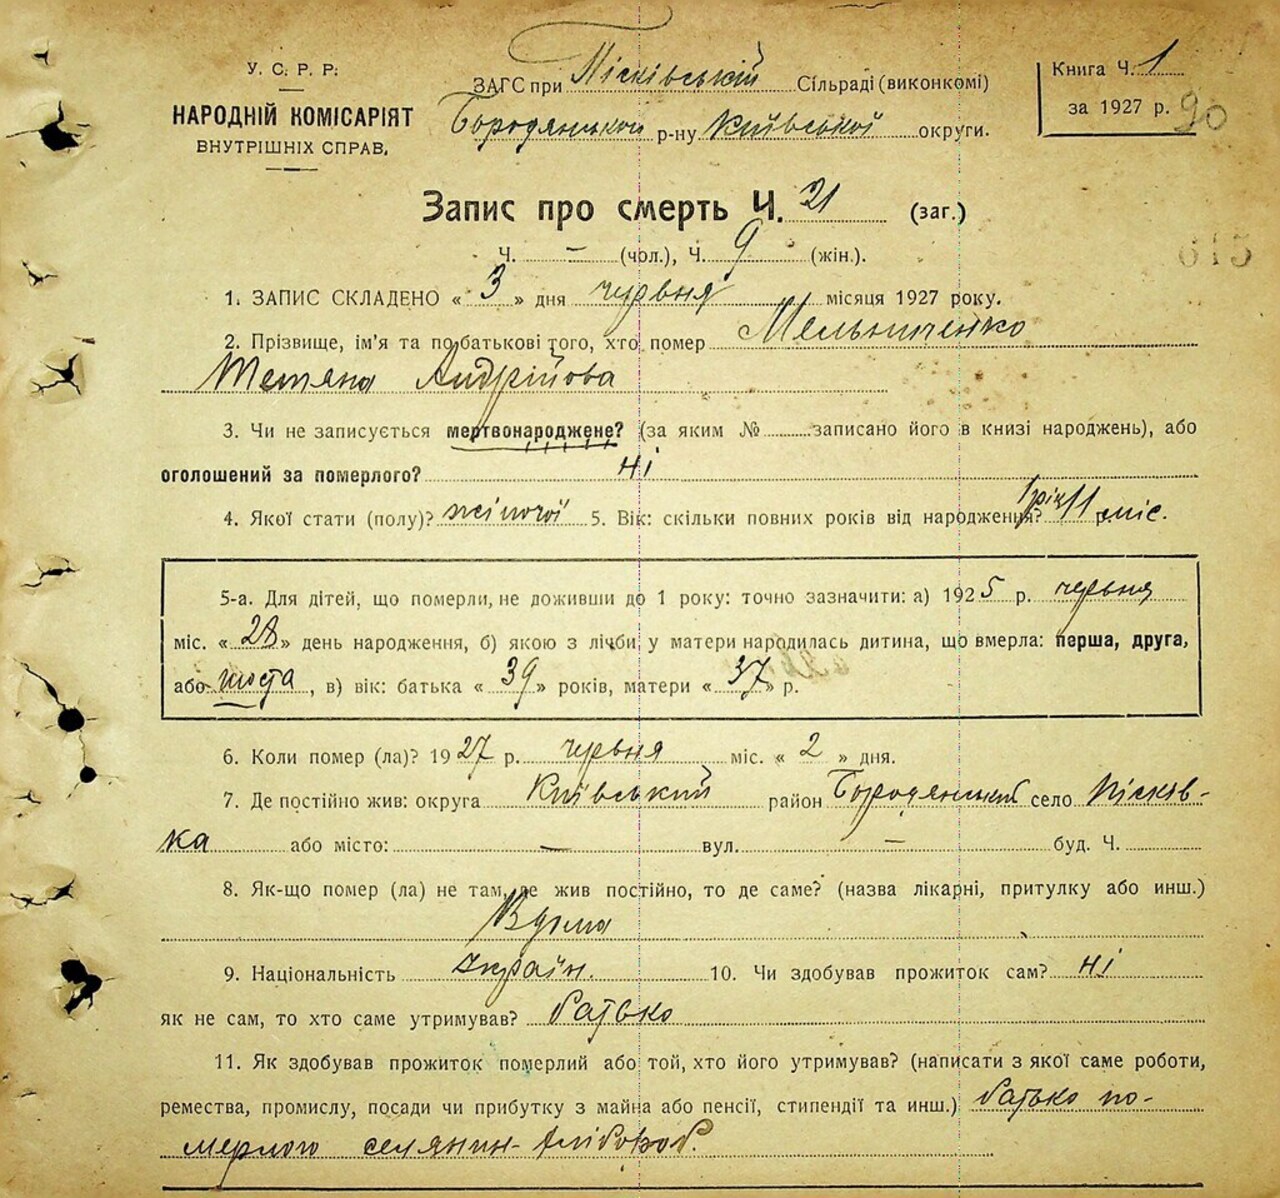 У. С. Р. Р.
НАРОДНІЙ КОМІСАРІЯТ
ВНУТРІШНІХ СПРАВ.
ЗАГС при Пісківській Сільраді (виконкомі)
Бородянськой р-ну Київської округи.
Книга Ч. 1
за 1927 р. 90
Запис про смерть Ч. 21 (заг.)
Ч. — (чол.), Ч. 9 (жін.).
615
1. ЗАПИС СКЛАДЕНО « 3 » дня червня місяця 1927 року.
2. Прізвище, ім'я та по батькові того, хто помер Мельниченко
Тетяна Андрійова
3. Чи не записується мертвонароджене? (за яким № записано його в книзі народжень), або
оголошений за померлого? ні
4. Якої стати (полу)? жіночої 5. Вік: скільки повних років від народження? 1 рік 11 міс.
5-а. Для дітей, що померли, не доживши до 1 року: точно зазначити: а) 1925 р. червня
міс. « 28 » день народження, б) якою з лічби у матери народилась дитина, що вмерла: перша, друга,
або шоста, в) вік: батька « 39 » років, матери « 37 » р.
6. Коли помер (ла)? 1927 р. червня міс. « 2 » дня.
7. Де постійно жив: округа Київський район Бородянський село Пісків-
ка або місто: — вул. — буд. Ч.
8. Як-що помер (ла) не там, де жив постійно, то де саме? (назва лікарні, притулку або инш.)
Вдома
9. Національність Україн. 10. Чи здобував прожиток сам? ні
як не сам, то хто саме утримував? батько
11. Як здобував прожиток померлий або той, хто його утримував? (написати з якої саме роботи,
ремества, промислу, посади чи прибутку з майна або пенсії, стипендії та инш.) батько по-
мерлого селянин-хлібороб.